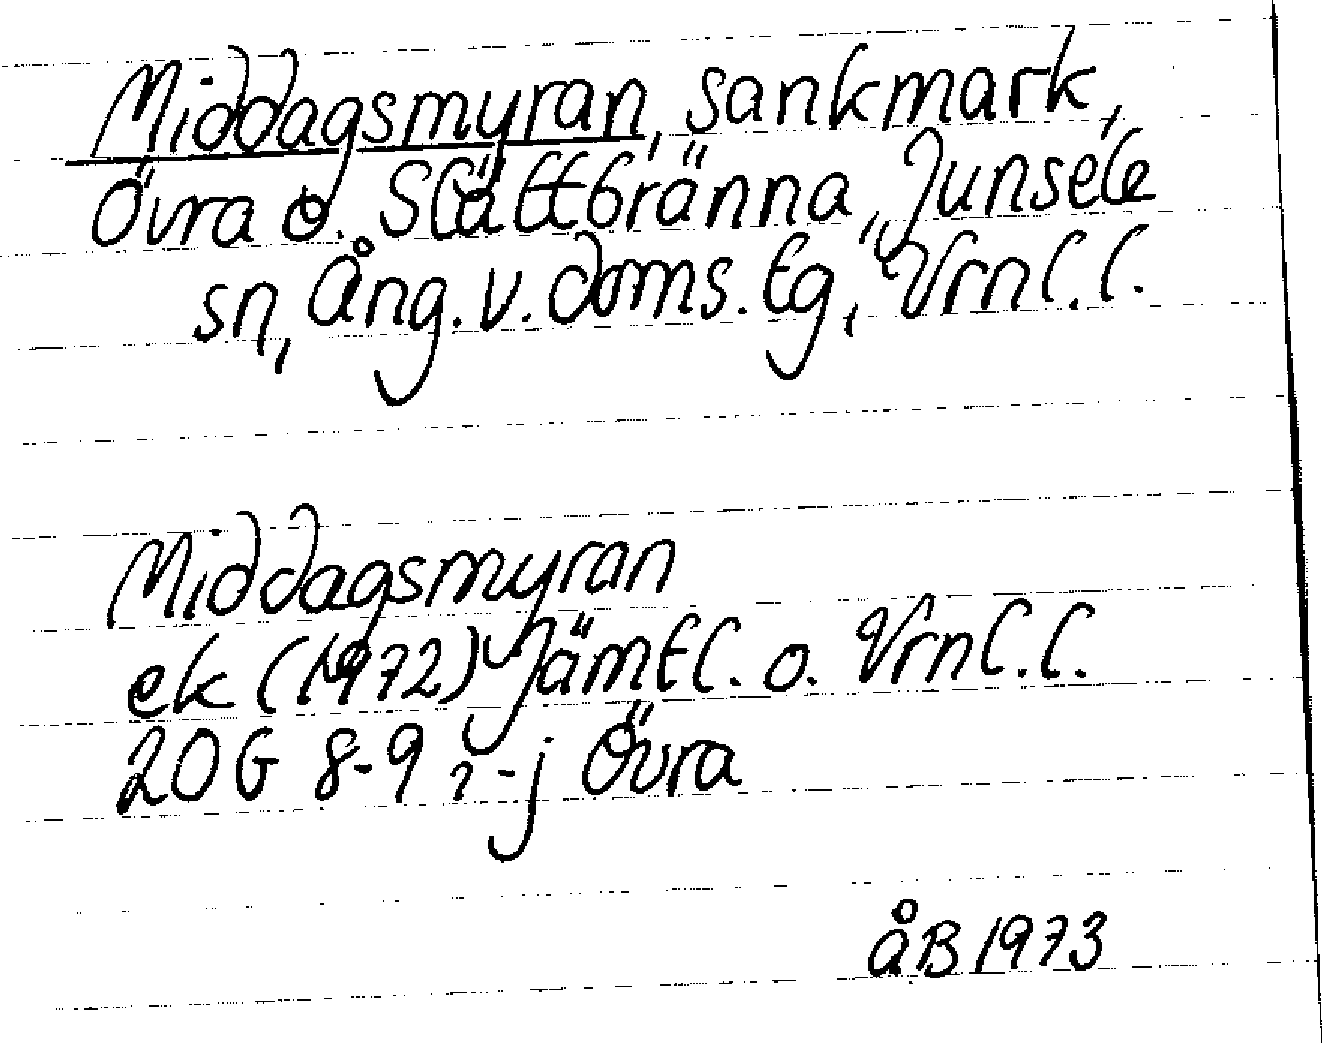 Middagsmyran, sankmark,
Övra o. Slättbränna, Junsele
sn, Ång. v. doms. tg, Vrnl.l.
Middagsmyran
ek (1972) Jämtl. o. Vrnl.l.
20G 8-9 i-j Övra
åB 1973